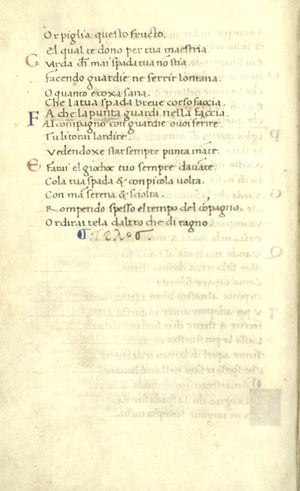 Or piglia questo fructo.
El qual te dono per tua maestria
Guarda chi mai spada tua no stia.
Facendo guardie ne ferrir lontana.
O quanto e coxa sana.
Che la tua spada breve corso faccia.
Fa che la punta guardi nella faccia.
Al compagno con guarde o voi ferire.
Tu li torai lardire.
Vedendoxe star sempre punta inante.
E farai el giocho tuo sempre davante.
Cola tua spada & con picola volta.
Con mã serena & sciolta.
Rompendo spesso el tempo del cõpagno.
Ordirai tela daltro che di ragno.
Τελος